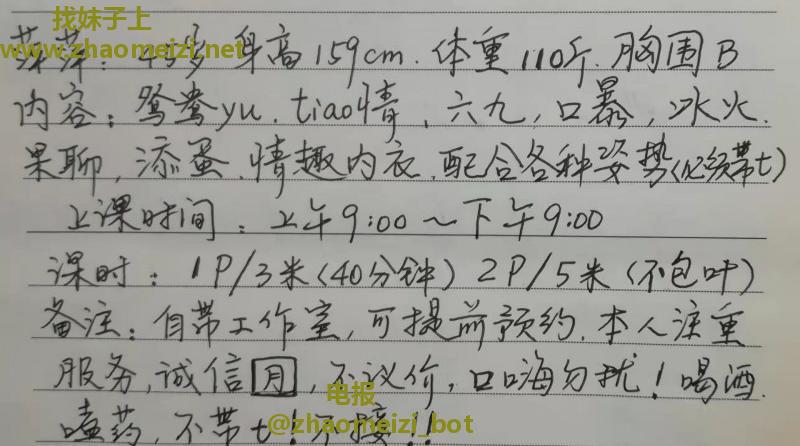 找妹子上
www.zhaomeizi.net
萍萍：45岁 身高159cm. 体重110斤. 胸围B
内容：鸳鸯yu. tiao情, 六九, 口暴, 冰火.
果聊, 添蛋, 情趣内衣, 配合各种姿势(必须带t)
上课时间：上午9:00～下午9:00
课时：1P/3米(40分钟) 2P/5米(不包叶)
备注：自带工作室, 可提前预约. 本人注重
服务, 诚信月, 不议价, 口嗨勿扰！喝酒.
嗑药, 不带t！不接！！
电报
@zhaomeizi_bot